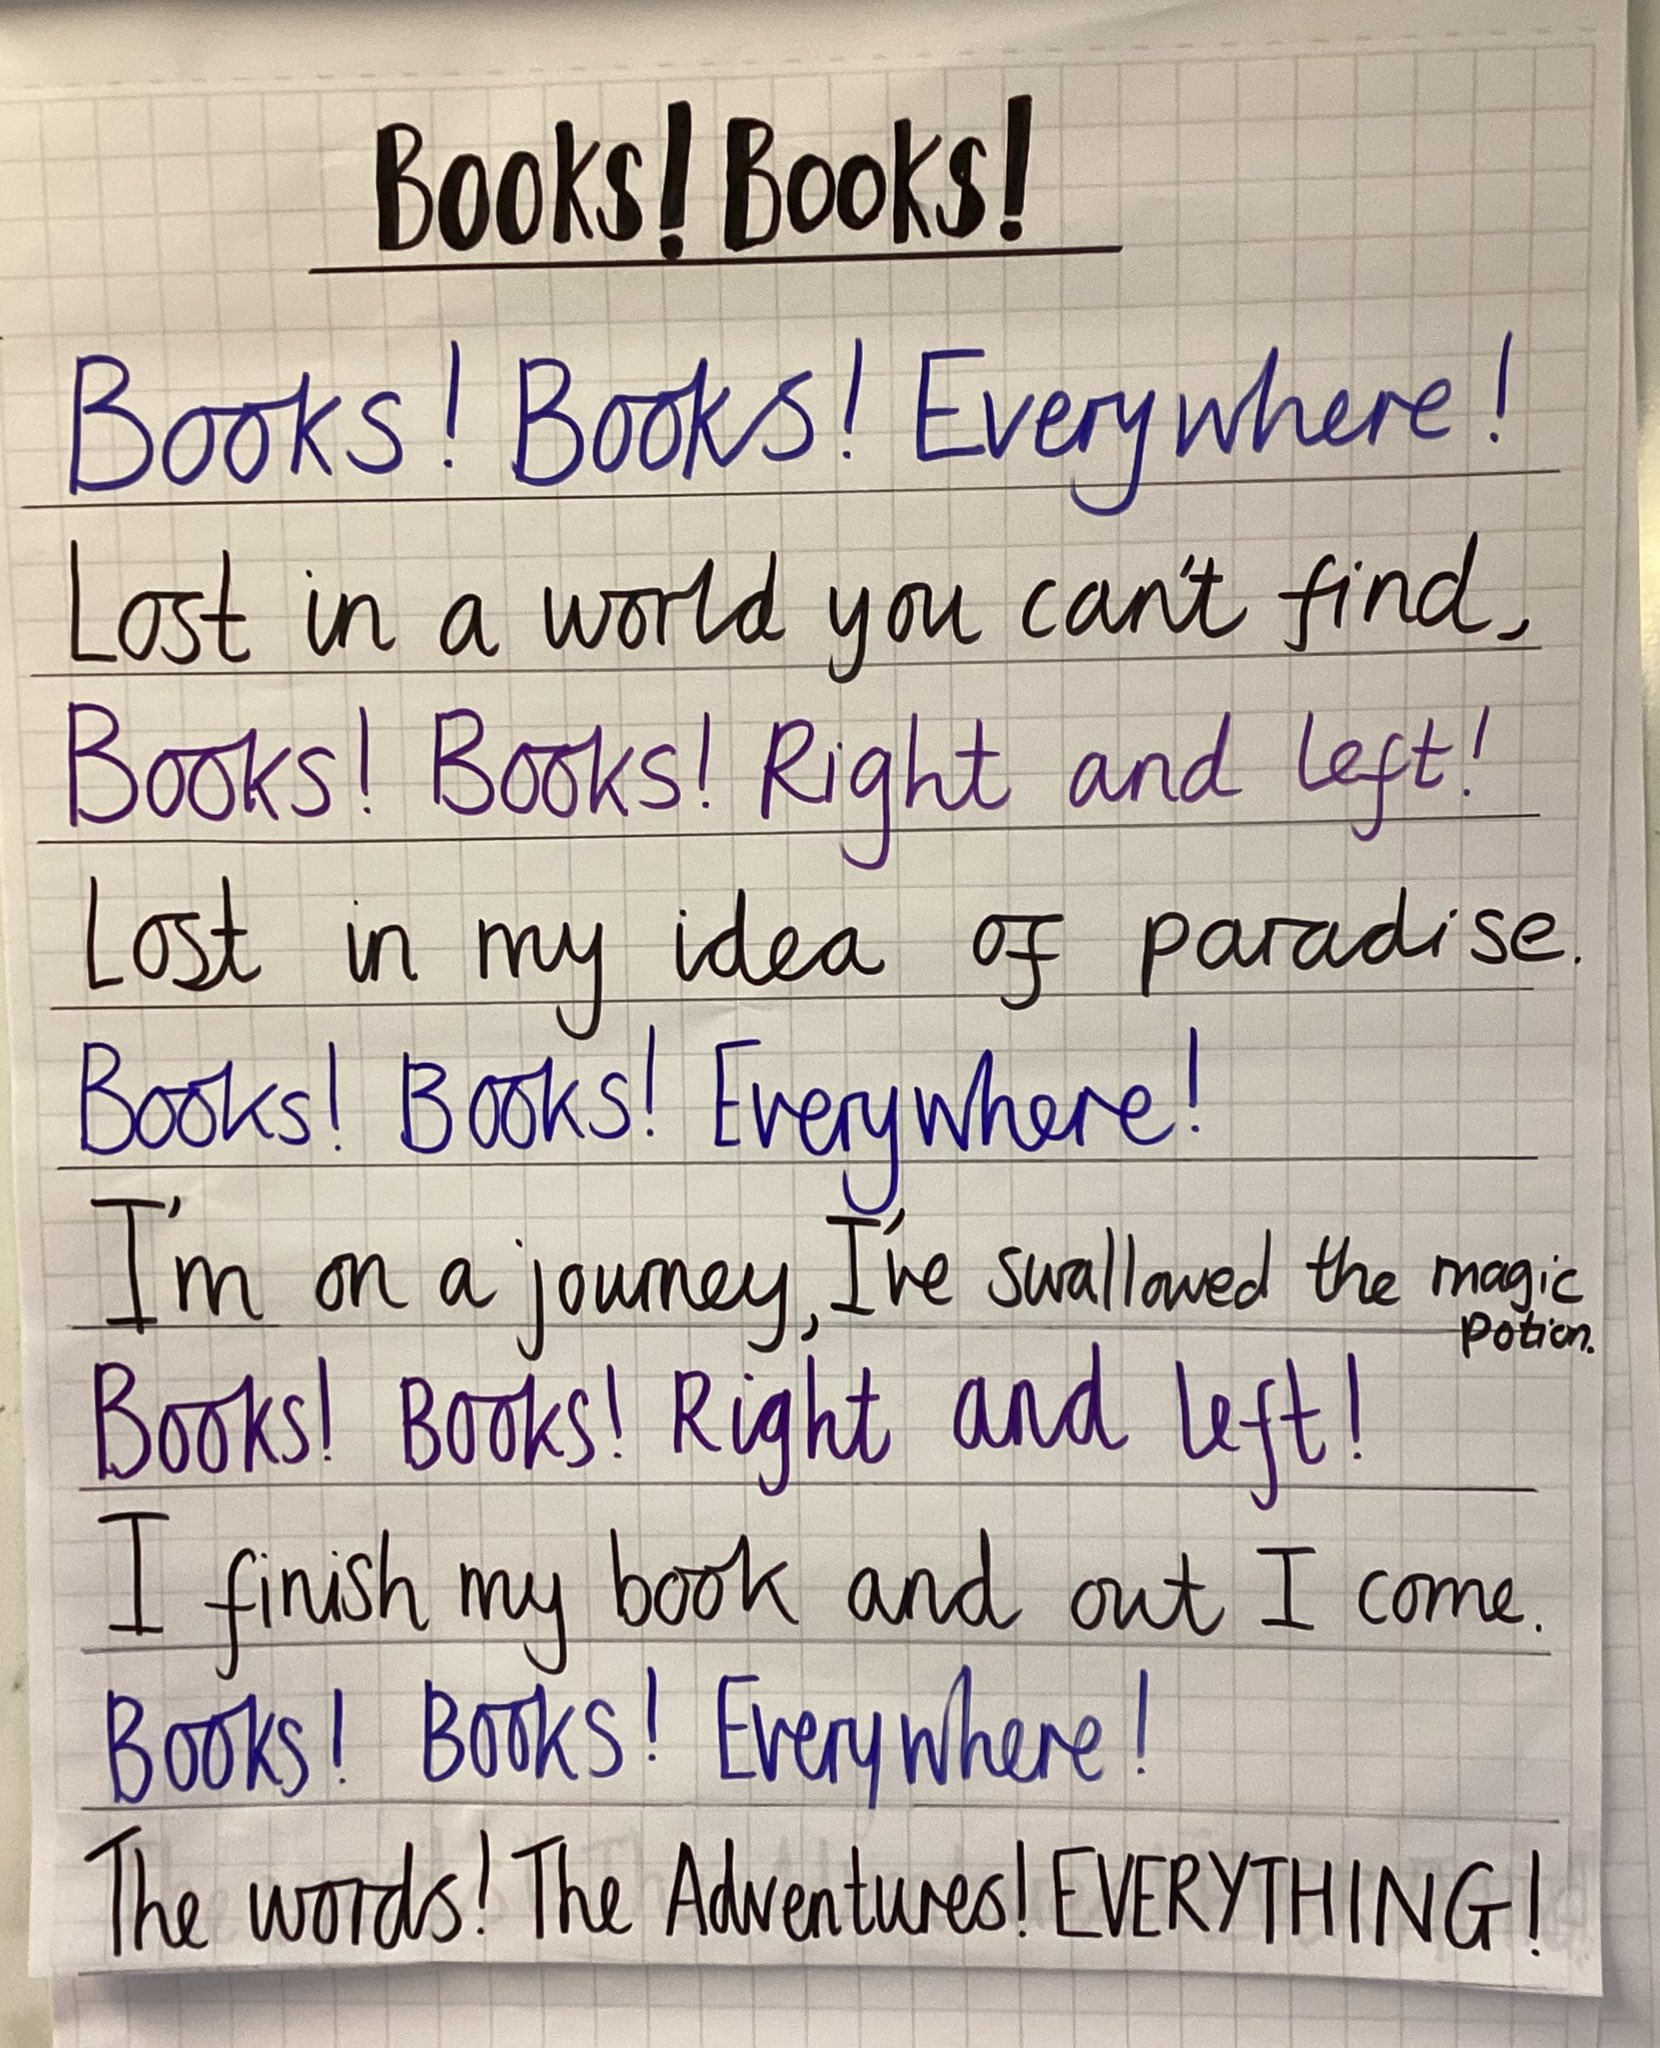 Books! Books!
Books! Books! Everywhere!
Lost in a world you can't find,
Books! Books! Right and left!
Lost in my idea of paradise.
Books! Books! Everywhere!
I'm on a journey, I've swallowed the magic
potion.
Books! Books! Right and left!
I finish my book and out I come.
Books! Books! Everywhere!
The words! The Adventures! EVERYTHING!